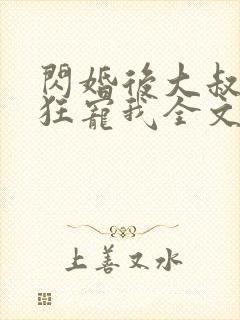 閃婚後大叔
狂寵我全文
上善又水